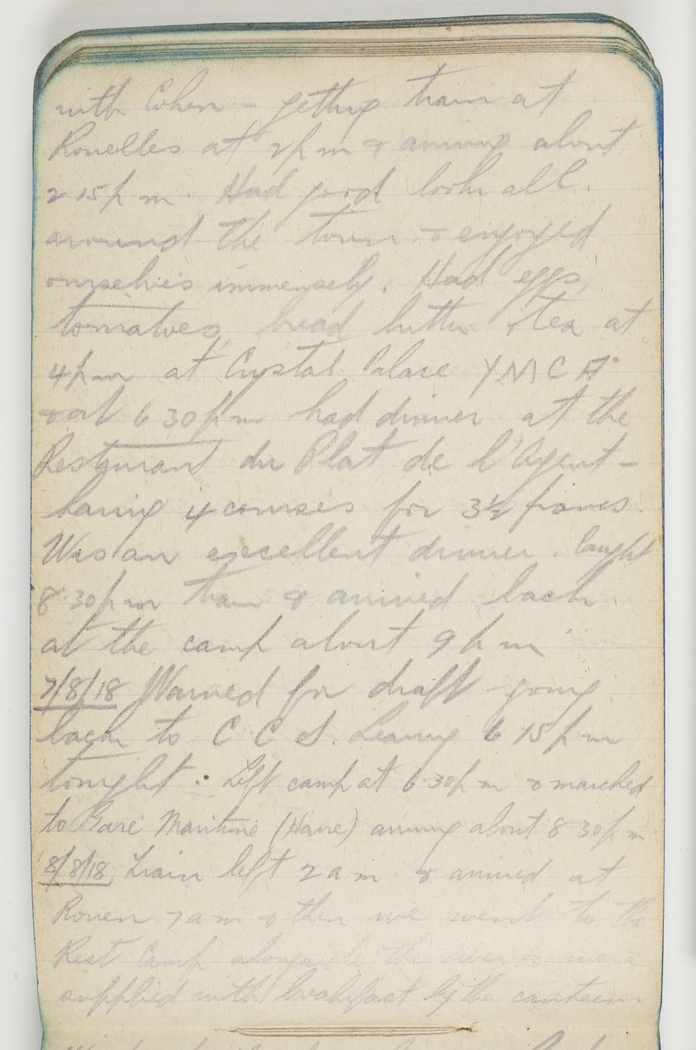 with Cohen - getting train at
Rouelles at 2 p m & arriving about
2 15 p. m. Had good look all
around the town & enjoyed
ourselves immensely. Had eggs,
tomatoes, bread butter & tea at
4 p m at Crystal Palace Y M C A
& at 6 30 p m had dinner at the
Restaurant du Plat de l'Agent -
having 4 courses for 3½ francs.
Was an excellent dinner. Caught
8.30 p m tram & arrived back
at the camp about 9 p m
7/8/18 Warned for draft going
back to C C S. Leaving 6 15 p m
tonight. Left camp at 6.30 p m & marched
to Gare Maritime (Havre) arriving about 8 30 p m
8/8/18 Train left 2 a m & arrived at
Rouen 7 a m & then we went to the
Rest Camp alongside the river & were
supplied with breakfast by the canteen.